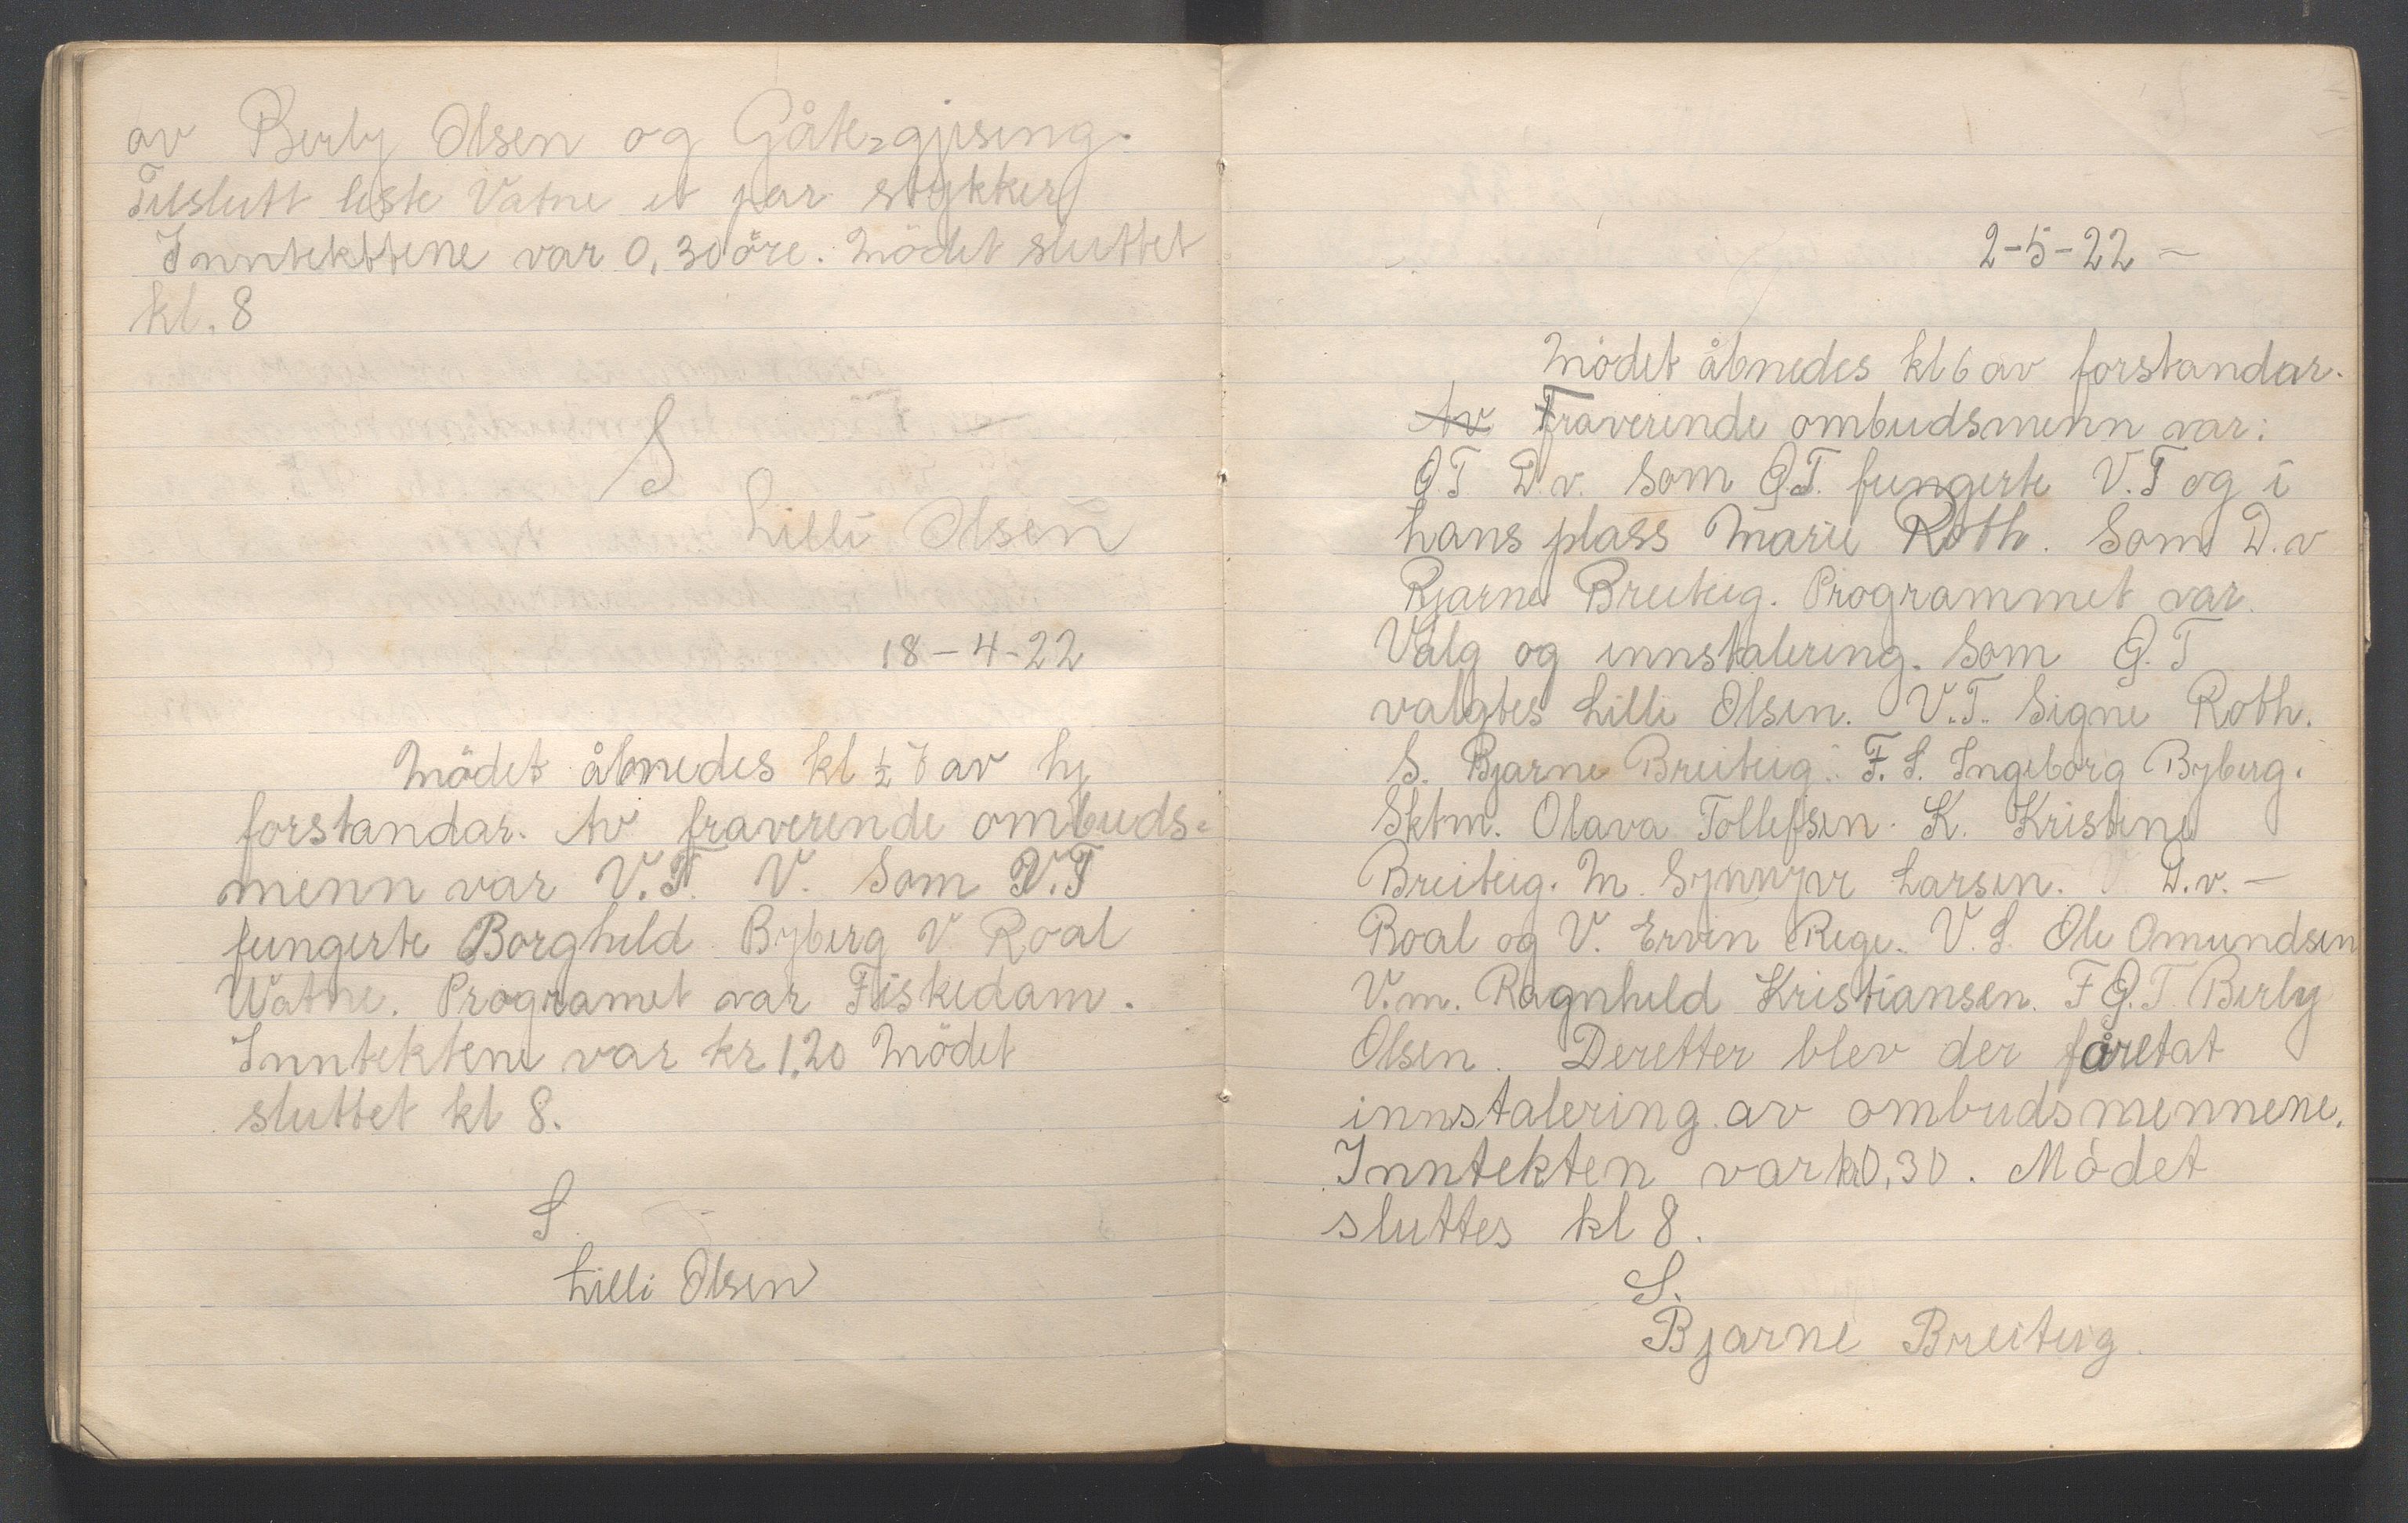 av Berly Olsen og Gåte-gjising.
Tilslutt leste Vatne et par stykker
Inntekttene var 0,30 öre. Mödet sluttet
kl. 8
S
Lilli Olsen
18-4-22
Mödet åbnedes kl ½ 7 av hj
forstandar. Av fraverende ombuds-
menn var V.T. V. Som V.T
fungerte Borghild Byberg V Roal
Watne. Programet var Fiskedam.
Inntektene var kr 1,20 Mödet
sluttet kl 8.
S
Lilli Olsen
2-5-22 -
Mödet åbnedes kl 6 av forstandar.
Av Fraverende ombudsmenn var:
G.T D.v. Som G.T. fungerte V.T og i
hans plass Marie Roth. Som D.v
Bjarne Breiteig. Programmet var
Valg og innstalering. Som G.T
valgtes Lilli Olsen. V.T. Signe Roth.
S. Bjarne Breiteig. F.S. Ingeborg Byberg.
Sktm. Olava Tollefsen. K. Kristine
Breiteig. M. Synnyve Larsen. D.v. -
Roal og V. Ervin Rege. V.S. Ole Omundsen
V.m. Ragnhild Kristiansen. F G.T. Berly
Olsen. Deretter blev der fåretat
innstalering av ombudsmennene.
Inntekten var kr 0,30. Mödet
sluttes kl 8.
S.
Bjarne Breiteig.